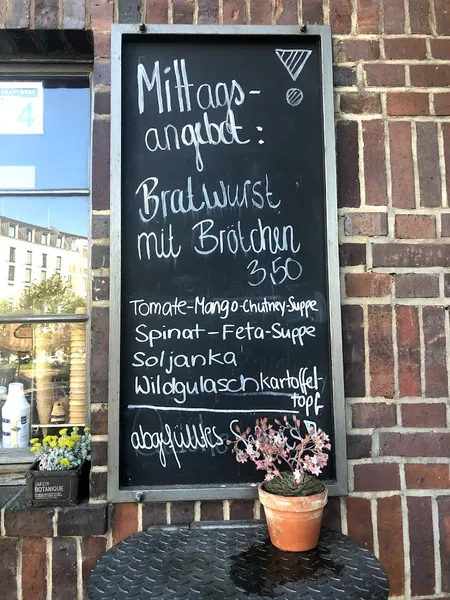 Mittags-
angebot:
Bratwurst
mit Brötchen
3,50
Tomate-Mango-Chutney-Suppe
Spinat-Feta-Suppe
Soljanka
Wildgulaschkartoffel-
topf
abgefülltes
4
JARDIN
BOTANIQUE